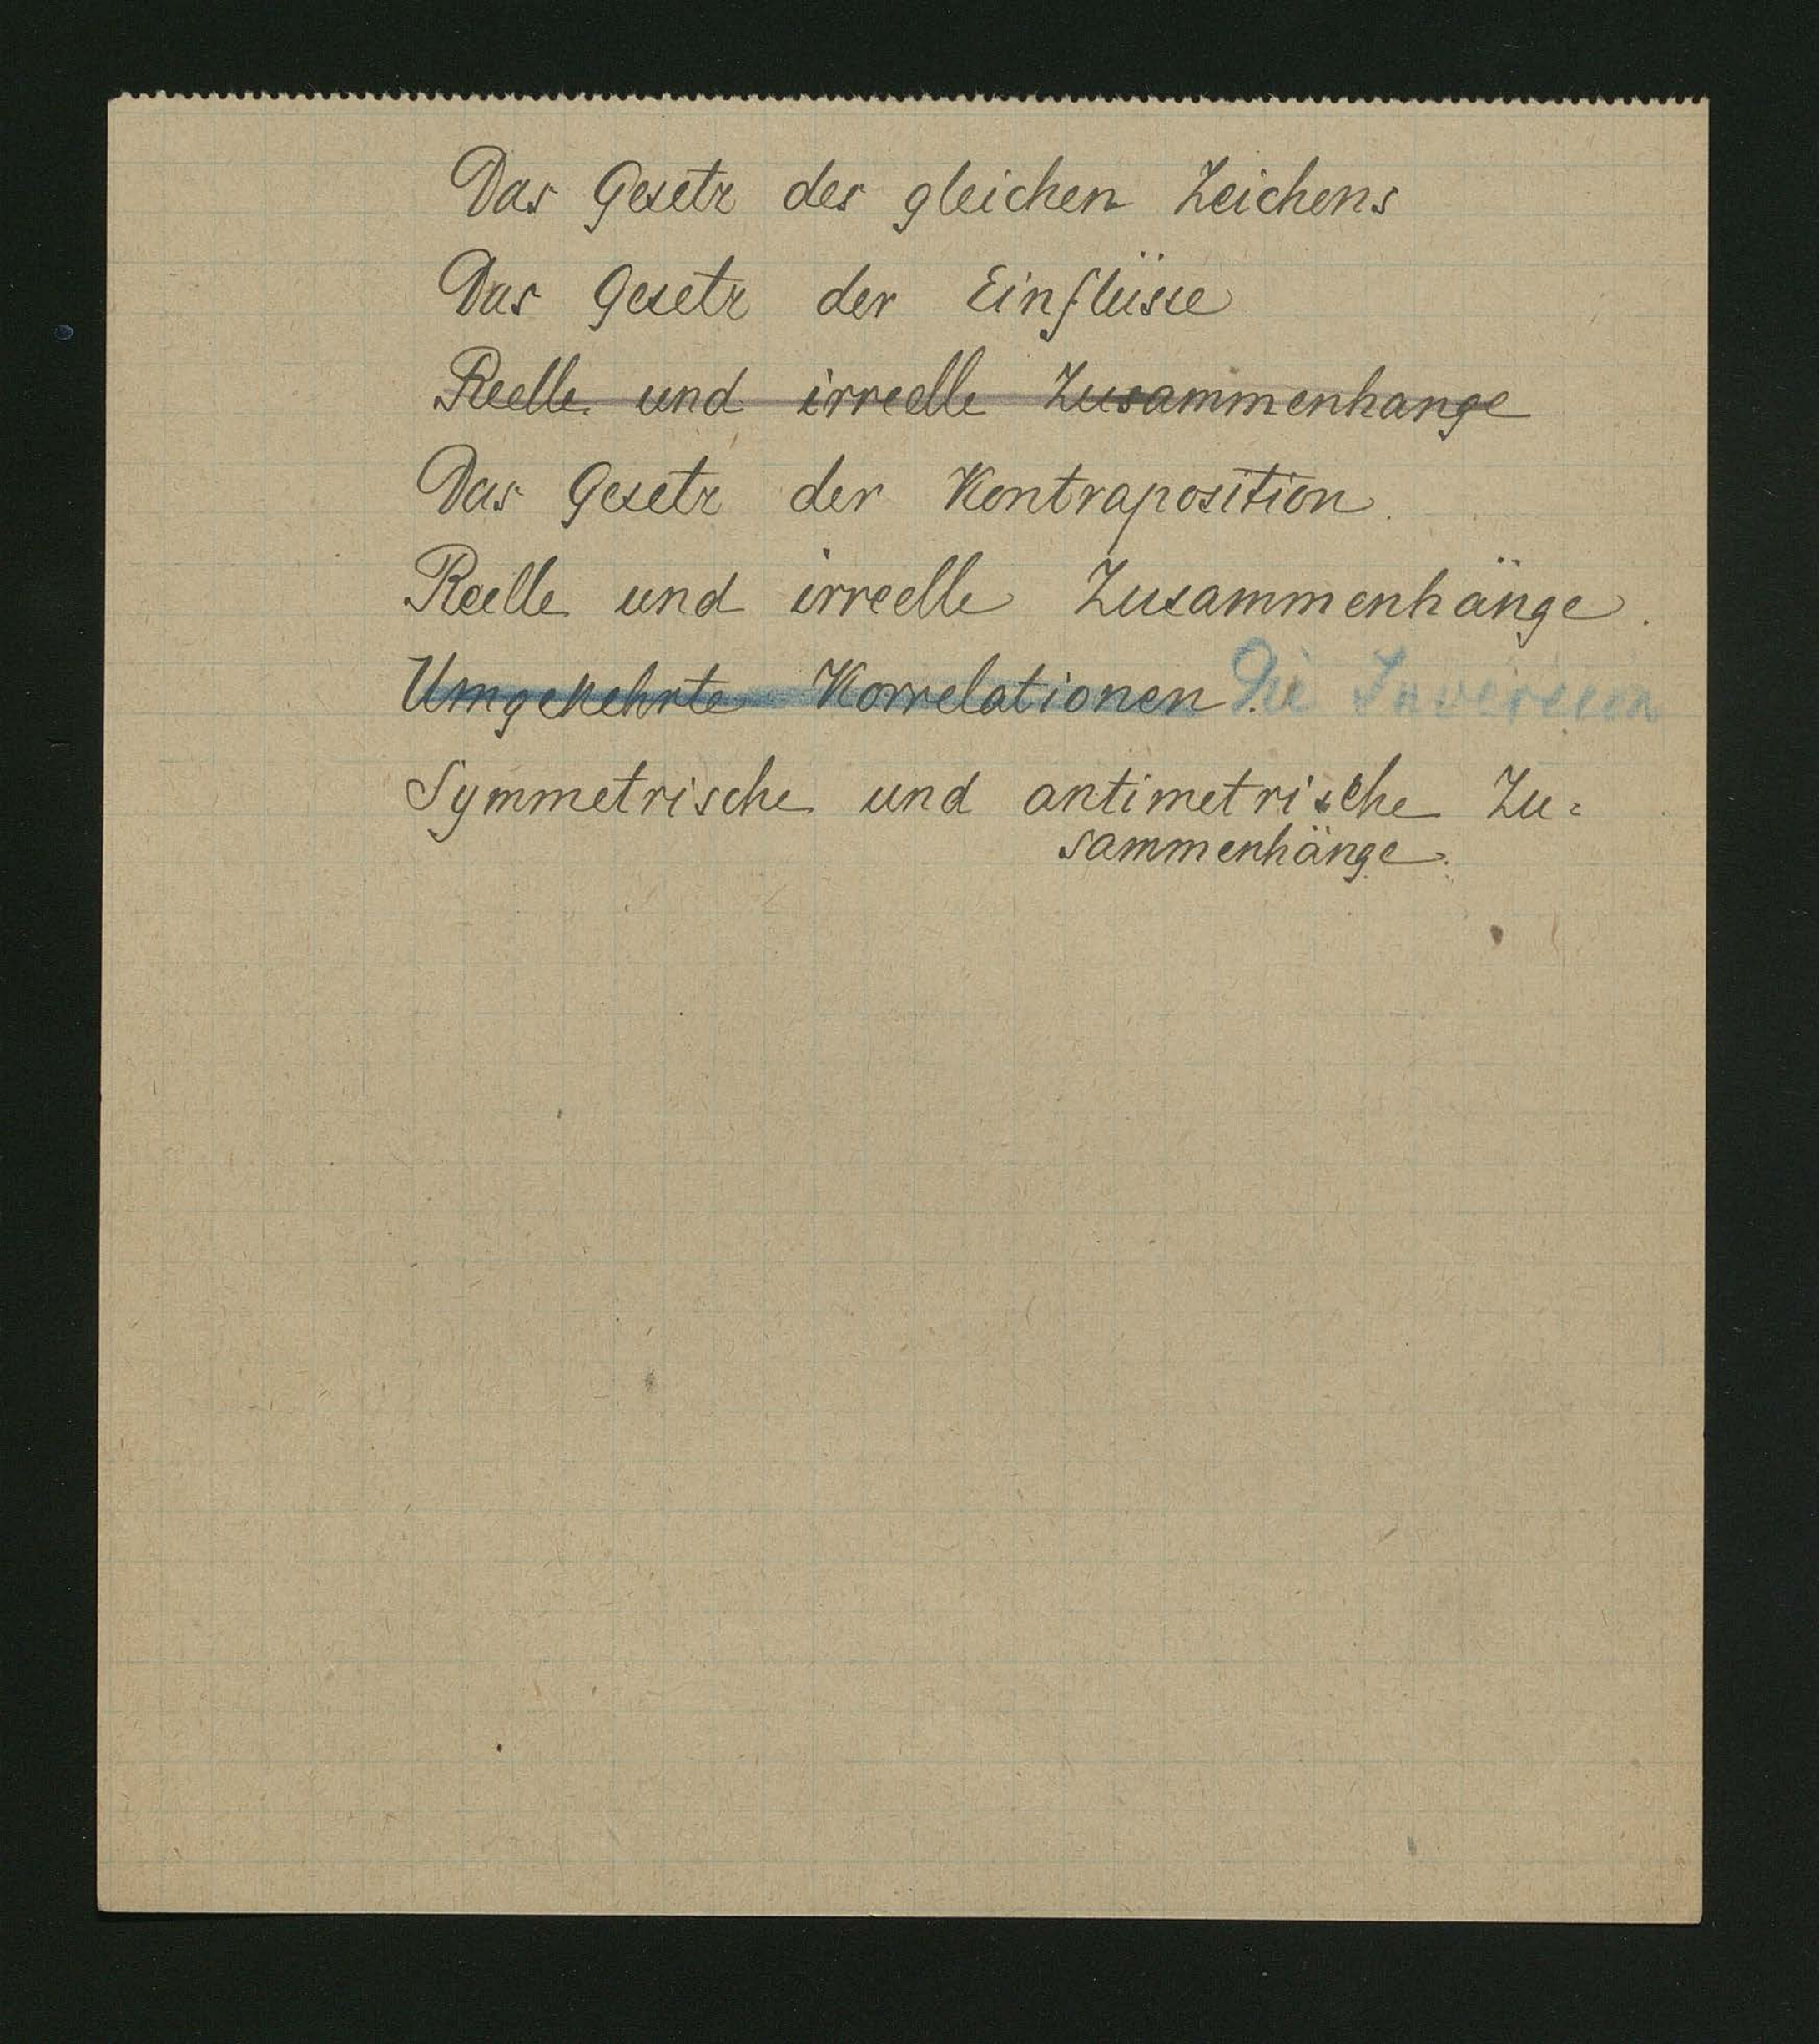 Das Gesetz des gleichen Zeichens
Das Gesetz der Einflüsse
Reelle und irreelle Zusammenhange
Das Gesetz der Kontraposition.
Reelle und irreelle Zusammenhänge.
Umgekehrte Korrelationen. Die Inversion
Symmetrische und antimetrische Zu=
sammenhänge.